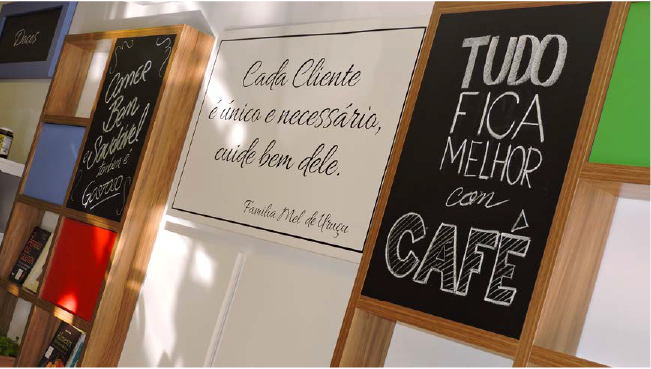 Doces
Comer
Bem
e
Saudável
também é
Gostoso
Cada Cliente
é único e necessário,
cuide bem dele.
Família Mel de Uruçu
TUDO
FICA
MELHOR
com
CAFÉ